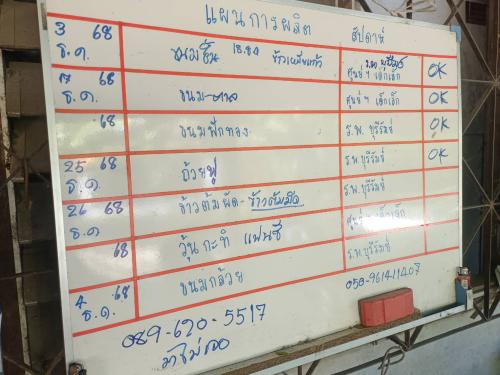 แผนการผลิต สัปดาห์
3 68 ธ.ค. ขนมชั้น ศูนย์ฯ เด็กเล็ก OK
17 68 ธ.ค. ขนม ศูนย์ฯ เด็กเล็ก OK
68 ขนมฟักทอง ร.พ.บุรีรัมย์ OK
25 68 ธ.ค. ถ้วยฟู ร.พ.บุรีรัมย์ OK
26 68 ธ.ค ข้าวต้มผัด-ข้าวต้มมัด ร.พ.บุรีรัมย์
68 วุ้นกะทิ แฟนซี ศูนย์ฯ เด็กเล็ก
4 68 ธ.ค. ขนมกล้วย ร.พ.บุรีรัมย์
089-620-5517